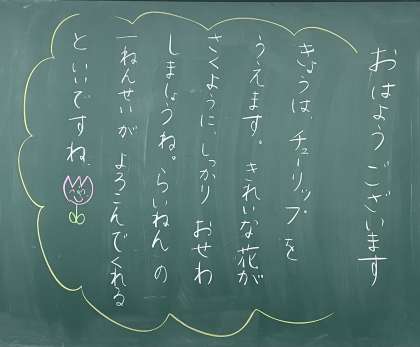 おはようございます
きょうは、チューリップを
うえます。きれいな花が
さくように、しっかり おせわ
しましょうね。らいねんの
一ねんせいが よろこんでくれる
といいですね。